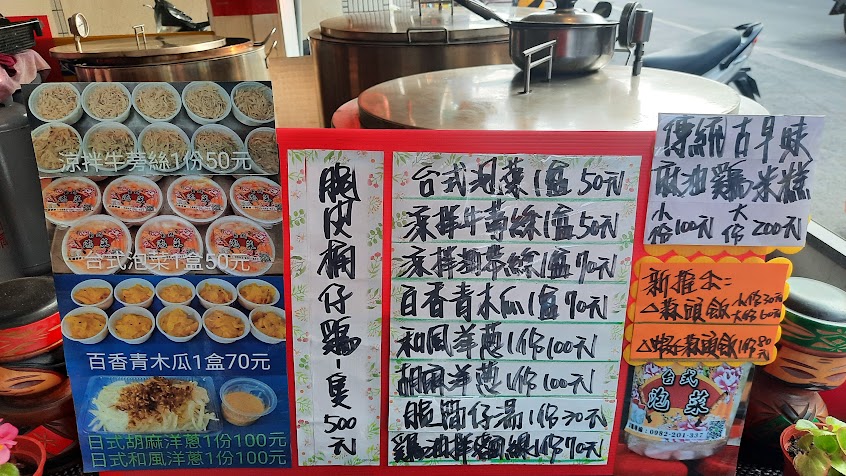 涼拌牛蒡絲1份50元
台式泡菜1盒50元
百香青木瓜1盒70元
日式胡麻洋蔥1份100元
日式和風洋蔥1份100元
脆皮桶仔雞一隻500元
台式泡菜1盒50元
涼拌牛蒡絲1盒50元
涼拌海帶絲1盒70元
百香青木瓜1盒70元
和風洋蔥1份100元
胡麻洋蔥1份100元
1份30元
雞油拌麵線1份70元
傳統古早味
麻油雞米糕
小份100元 大份200元
新推出:
△蒜頭飯 小份30元
大份60元
蒜頭飯1份80元
台式
泡菜
0982-201-337